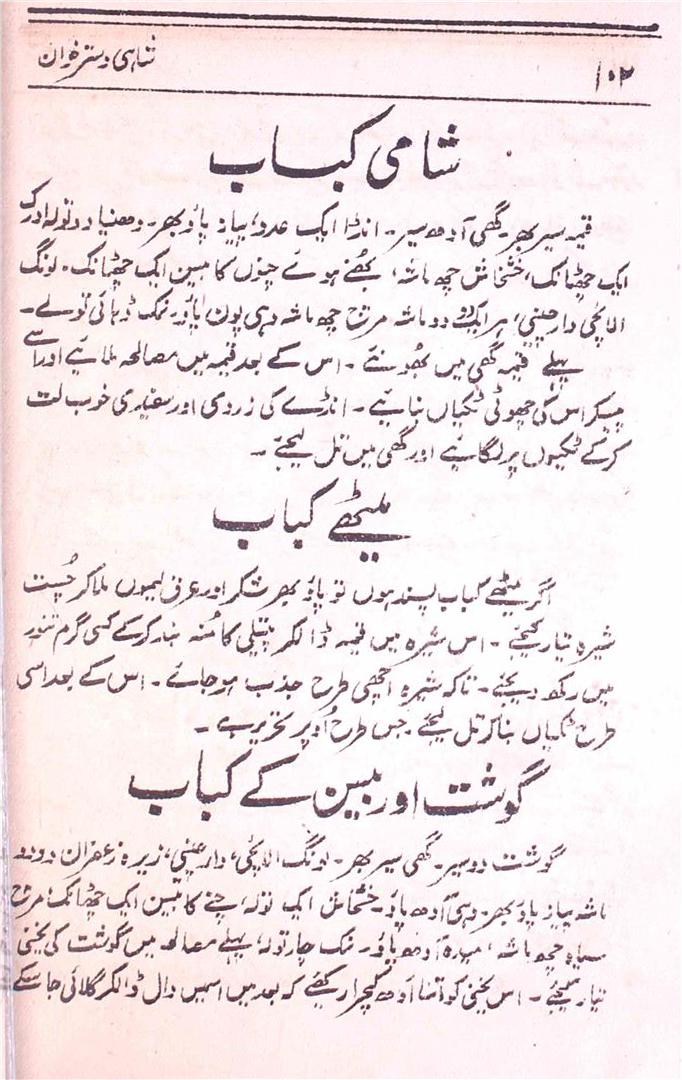 ۱۰۲
شاہی دسترخوان
شامی کباب
قیمہ سیر بھر۔ گھی آدھ سیر۔ انڈا ایک عدد، پیاز پاؤ بھر۔ دھنیا دو تولہ ادرک
ایک چھٹانک، خشخاش چھ ماشہ، بھُنے ہوئے چنوں کا بیسن ایک چھٹانک۔ لونگ
الائچی دار چینی، ہر ایک دو دو ماشہ مرچ چھ ماشہ دہی پون پاؤ۔ نمک ڈہائی تولے۔
پہلے قیمہ گھی میں بھُونئے۔ اس کے بعد قیمہ میں مصالحہ ملائیے اور اسے
پیسکر اس کی چھوٹی ٹکیاں بنائیے۔ انڈے کی زردی اور سفیدی خوب لت
کر کے ٹکیوں پر لگائیے اور گھی میں تل لیجئے۔
میٹھے کباب
اگر میٹھے کباب پسند ہوں تو پاؤ بھر شکر اور عرق لیموں ملا کر چُست
شیرہ تیار کیجئے۔ اس شیرہ میں قیمہ ڈالکر پتیلی کا مُنہ بند کر کے کسی گرم تنور
میں رکھ دیجئے۔ تاکہ شیرہ اچھی طرح جذب ہو جائے۔ اس کے بعد اسی
طرح ٹکیاں بنا کر تل لیجئے جس طرح اُوپر تحریر ہے۔
گوشت اور بیسن کے کباب
گوشت دو سیر۔ گھی سیر بھر۔ لونگ الائچی، دار چینی، زیرہ زعفران دو دو
ماشہ پیاز پاؤ بھر۔ دہی آدھ پاؤ۔ خشخاش ایک تولہ، چنے کا بیسن ایک چھٹانک، مرچ
سیاہ چھ ماشہ، میدہ آدھ پاؤ۔ نمک چار تولہ، پہلے مصالحہ میں گوشت کی یخنی
تیار کیجئے۔ اس یخنی کو اتنا آدھ کچرا رکھئے کہ بعد میں اسمیں دال ڈالکر گلائی جا سکے